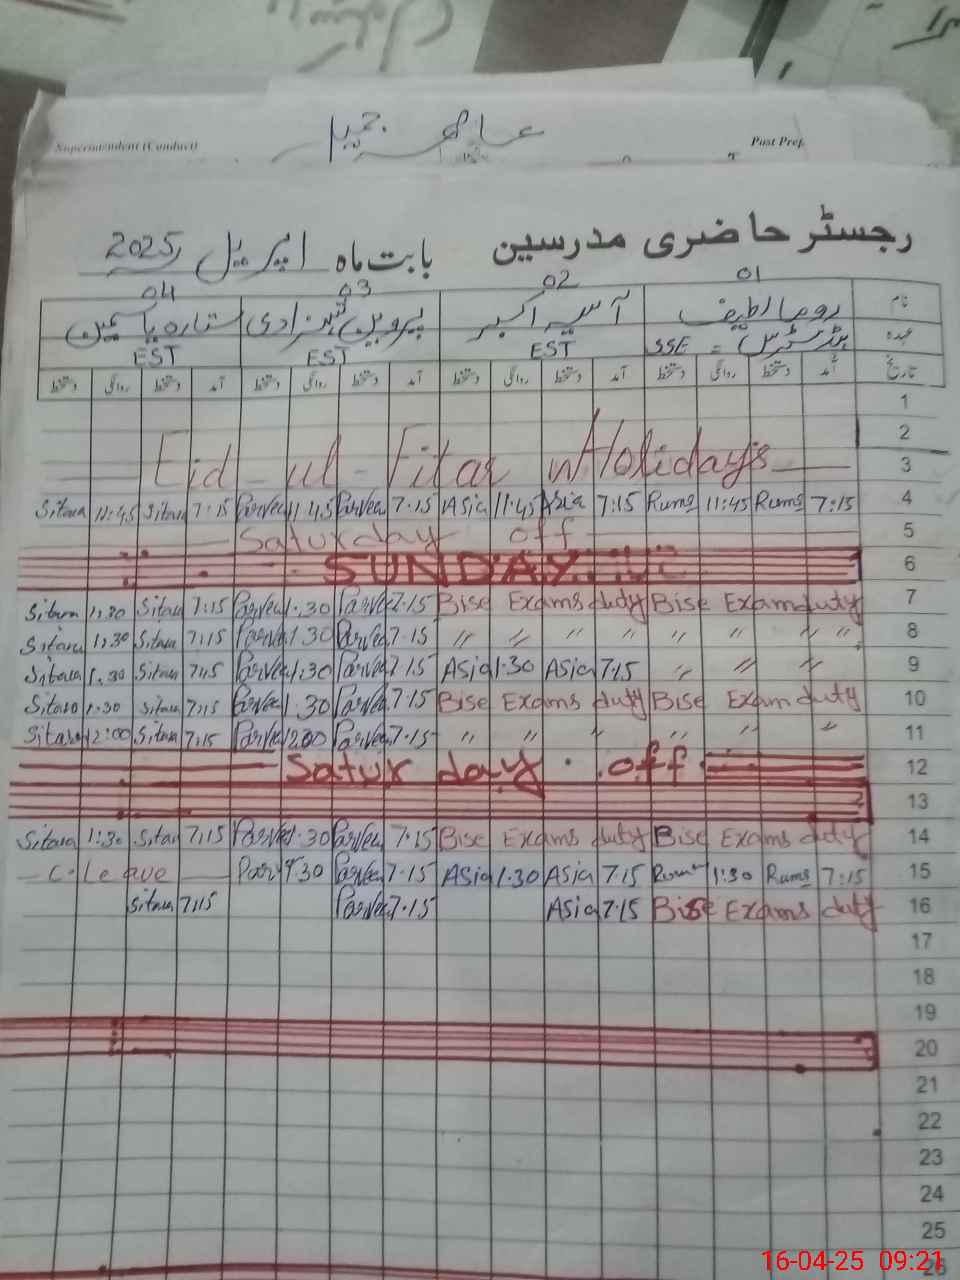 Superintendent (Conduct)
Post Prep.
رجسٹر حاضری مدرسین بابت ماہ اپریل 2025ء
01 02 03 04
نام روما لطیف آسیہ اکبر پروین شہزادی ستارہ یاسمین
عہدہ ہیڈمسٹریس = SSE EST EST EST
تاریخ آمد دستخط روانگی دستخط آمد دستخط روانگی دستخط آمد دستخط روانگی دستخط آمد دستخط روانگی دستخط
1
2
Eid ul-Fitar Holidays 3
Sitara 11:45 Sitara 7:15 Parveen 11:45 Parveen 7:15 Asia 11:45 Asia 7:15 Ruma 11:45 Ruma 7:15 4
Saturday off 5
SUNDAY 6
Sitara 1:30 Sitara 7:15 Parveen 1:30 Parveen 7:15 Bise Exams duty Bise Exam duty 7
Sitara 1:30 Sitara 7:15 Parveen 1:30 Parveen 7:15 " " " " " " " " 8
Sitara 1:30 Sitara 7:15 Parveen 1:30 Parveen 7:15 Asia 1:30 Asia 7:15 " " " 9
Sitara 1:30 Sitara 7:15 Parveen 1:30 Parveen 7:15 Bise Exams duty Bise Exam duty 10
Sitara 12:00 Sitara 7:15 Parveen 12:00 Parveen 7:15 " " " " " " " 11
Satur day off 12
13
Sitara 1:30 Sitara 7:15 Parveen 1:30 Parveen 7:15 Bise Exams duty Bise Exams duty 14
C.Leave Parveen 1:30 Parveen 7:15 Asia 1:30 Asia 7:15 Ruma 1:30 Ruma 7:15 15
Sitara 7:15 Parveen 7:15 Asia 7:15 Bise Exams duty 16
17
18
19
20
21
22
23
24
25
26
16-04-25 09:21